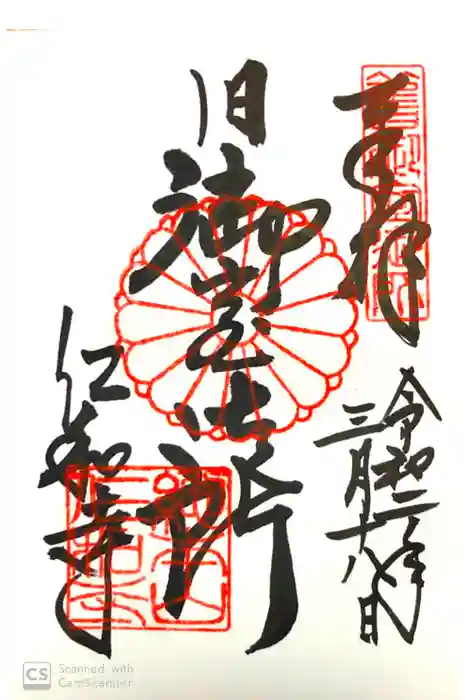 奉拝
令和二年
三月十八日
旧御室御所
仁和寺
CS Scanned with
CamScanner